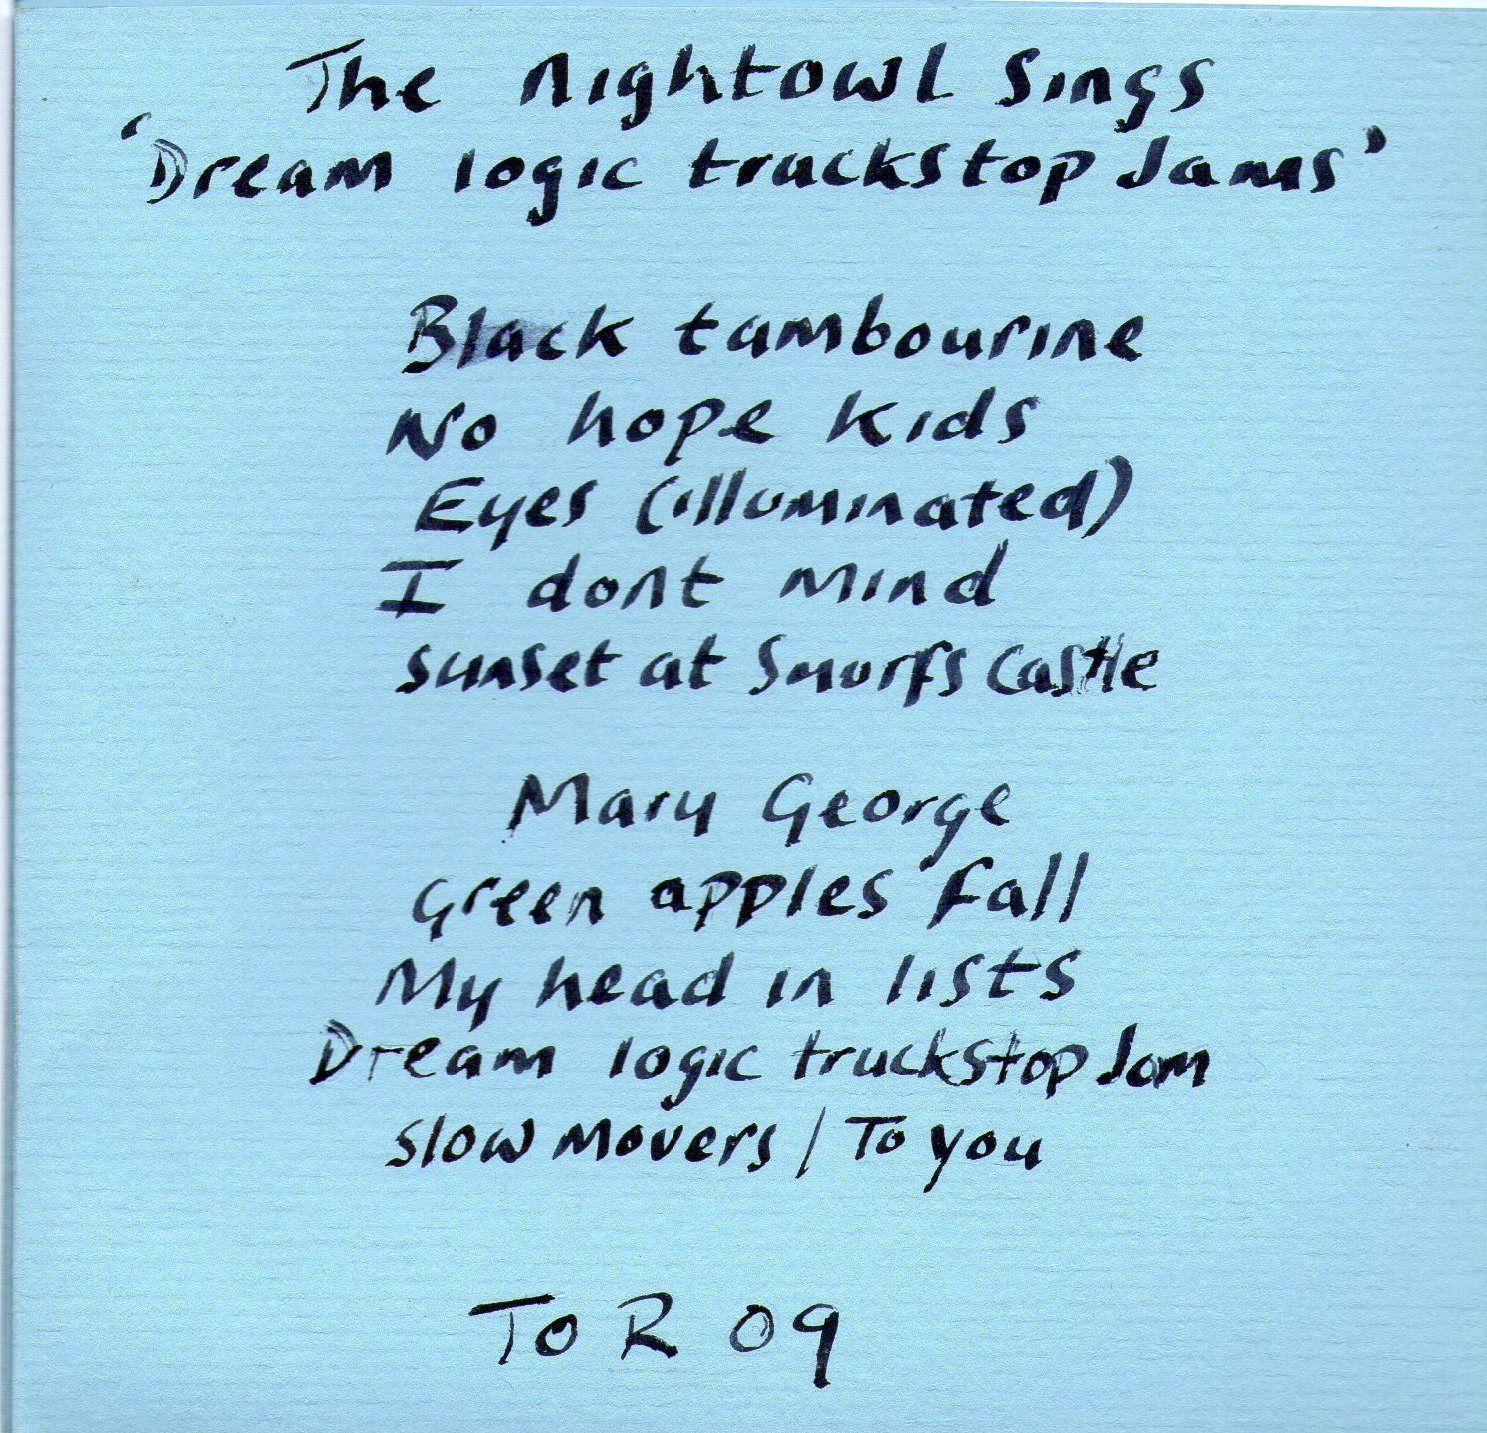 The nightowl Sings
'Dream logic truckstop Jams'
Black tambourine
No hope kids
Eyes (illuminated)
I dont mind
sunset at Smurfs Castle
Mary George
Green apples fall
My head in lists
Dream logic truckstop Jam
Slow movers / To you
To R 09